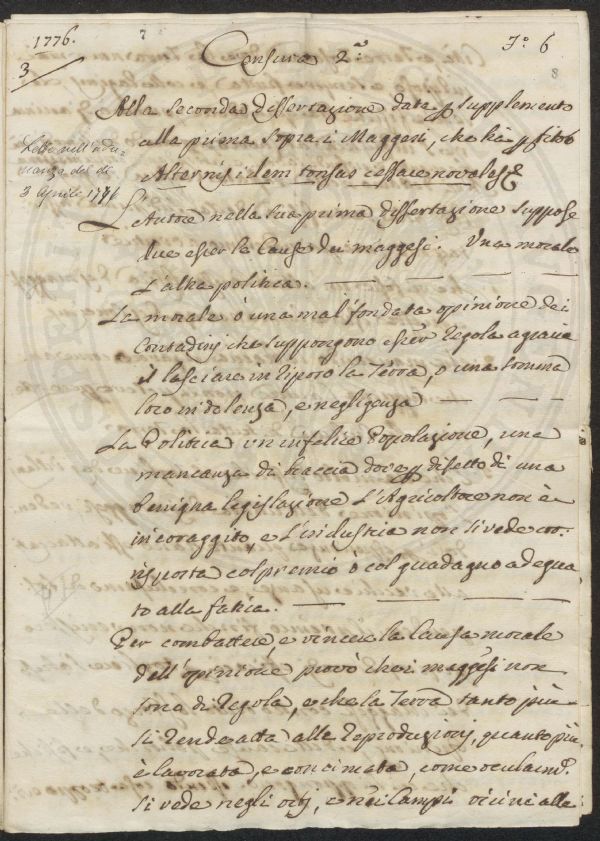 1776.
7
Censura 2.ª
F.º 6
3
8
Alla seconda dissertazione data p supplemento
alla prima sopra i Maggesi, che hà p titolo
Alternis idem tonsas cessare novales &
Letta nell'adu-
nanza del dì
3 Aprile 1776
L'Autore nella sua prima dissertazione suppose
due esser la Cause dei maggesi. Una morale
L'altra politica.
La morale ò una mal' fondata opinione dei
Contadini che suppongono esser regola agraria
il lasciare in riposo la Terra, o una somma
loro indolenza, e negligenza
La Politica un infelice Popolazione, una
mancanza di braccia dove p difetto di una
benigna legislazione L'Agricoltore non è
incoraggito, e l'industria non si vede cor-
risposta col premio ò col guadagno adegua
to alla fatica.
Per combattere, e vincere la Causa morale
dell'opinione provò che i maggesi non
sono di regola, e che la Terra tanto più
si rende atta alle reproduzioni, quanto più
è lavorata, e concimata, come oculaim.e
si vede negli orti, e nei Campi vicini alle